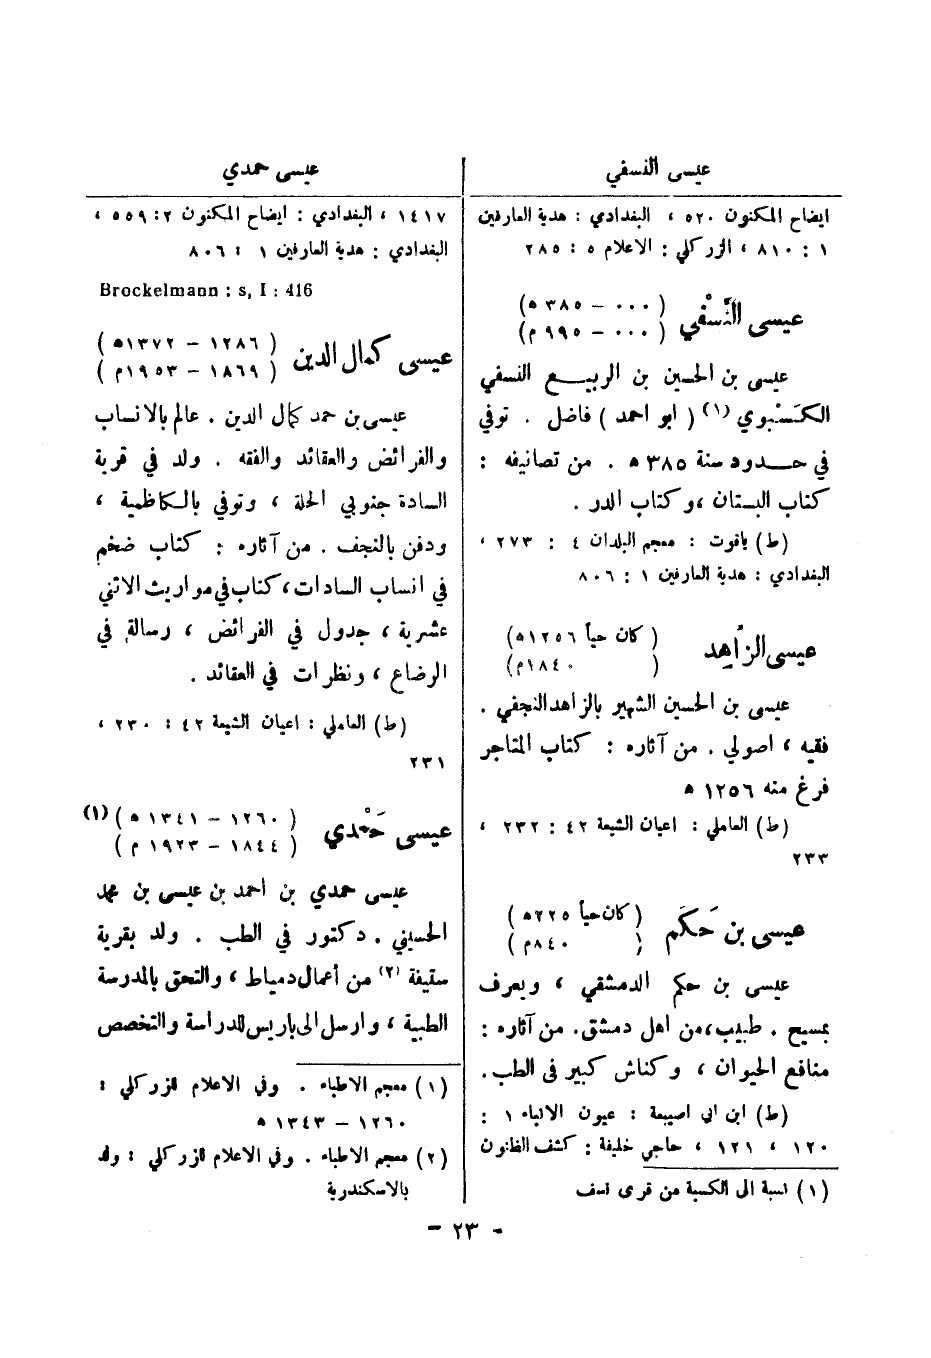 عيسى النسفي
ايضاح المكنون ٥٢٠ ، البغدادي : هدية العارفين
١ : ٨١٠ ، الزركلي : الاعلام ٥ : ٢٨٥
عيسى النَّسْفي ( ٠٠٠ – ٣٨٥ ه )
( ٠٠٠ – ٩٩٥ م )
عيسى بن الحسين بن الربيع النسفي
الكَسْبوي (١) ( ابو احمد ) فاضل . توفي
في حدود سنة ٣٨٥ ه . من تصانيفه :
كتاب البستان ، وكتاب الدر .
(ط) ياقوت : معجم البلدان ٤ : ٢٧٣ ،
البغدادي : هدية العارفين ١ : ٨٠٦
عيسى الزاهد ( كان حياً ١٢٥٦ ه )
( ١٨٤٠ م )
عيسى بن الحسين الشهير بالزاهد النجفي .
فقيه ، اصولي . من آثاره : كتاب المتاجر
فرغ منه ١٢٥٦ ه
(ط) العاملي : اعيان الشيعة ٤٢ : ٢٣٢ ،
٢٣٣
عيسى بن حَكَم ( كان حياً ٢٢٥ ه )
( ٨٤٠ م )
عيسى بن حكم الدمشقي ، ويعرف
بمسيح . طبيب ، من اهل دمشق . من آثاره :
منافع الحيوان ، وكناش كبير في الطب .
(ط) ابن ابي اصيبعة : عيون الانباء ١ :
١٢٠ ، ١٢١ ، حاجي خليفة : كشف الظنون
(١) نسبة الى الكسبة من قرى نسف
عيسى حمدي
١٤١٧ ، البغدادي : ايضاح المكنون ٢ : ٥٥٩ ،
البغدادي : هدية العارفين ١ : ٨٠٦
Brockelmann : s, I : 416
عيسى كمال الدين ( ١٢٨٦ – ١٣٧٢ ه )
( ١٨٦٩ – ١٩٥٣ م )
عيسى بن حمد كمال الدين . عالم بالانساب
والفرائض والعقائد والفقه . ولد في قرية
السادة جنوبي الحلة ، وتوفي بالكاظمية ،
ودفن بالنجف . من آثاره : كتاب ضخم
في انساب السادات ، كتاب في مواريث الاثني
عشرية ، جدول في الفرائض ، رسالة في
الرضاع ، ونظرات في العقائد .
(ط) العاملي : اعيان الشيعة ٤٢ : ٢٣٠ ،
٢٣١
عيسى حَمْدي ( ١٢٦٠ – ١٣٤١ ه ) (١)
( ١٨٤٤ – ١٩٢٣ م )
عيسى حمدي بن أحمد بن عيسى بن محمد
الحسيني . دكتور في الطب . ولد بقرية
سقيفة (٢) من أعمال دمياط ، والتحق بالمدرسة
الطبية ، وارسل الى باريس للدراسة والتخصص
(١) معجم الاطباء . وفي الاعلام للزركلي :
١٢٦٠ – ١٣٤٣ ه
(٢) معجم الاطباء . وفي الاعلام للزركلي : ولد
بالاسكندرية
- ٢٣ -